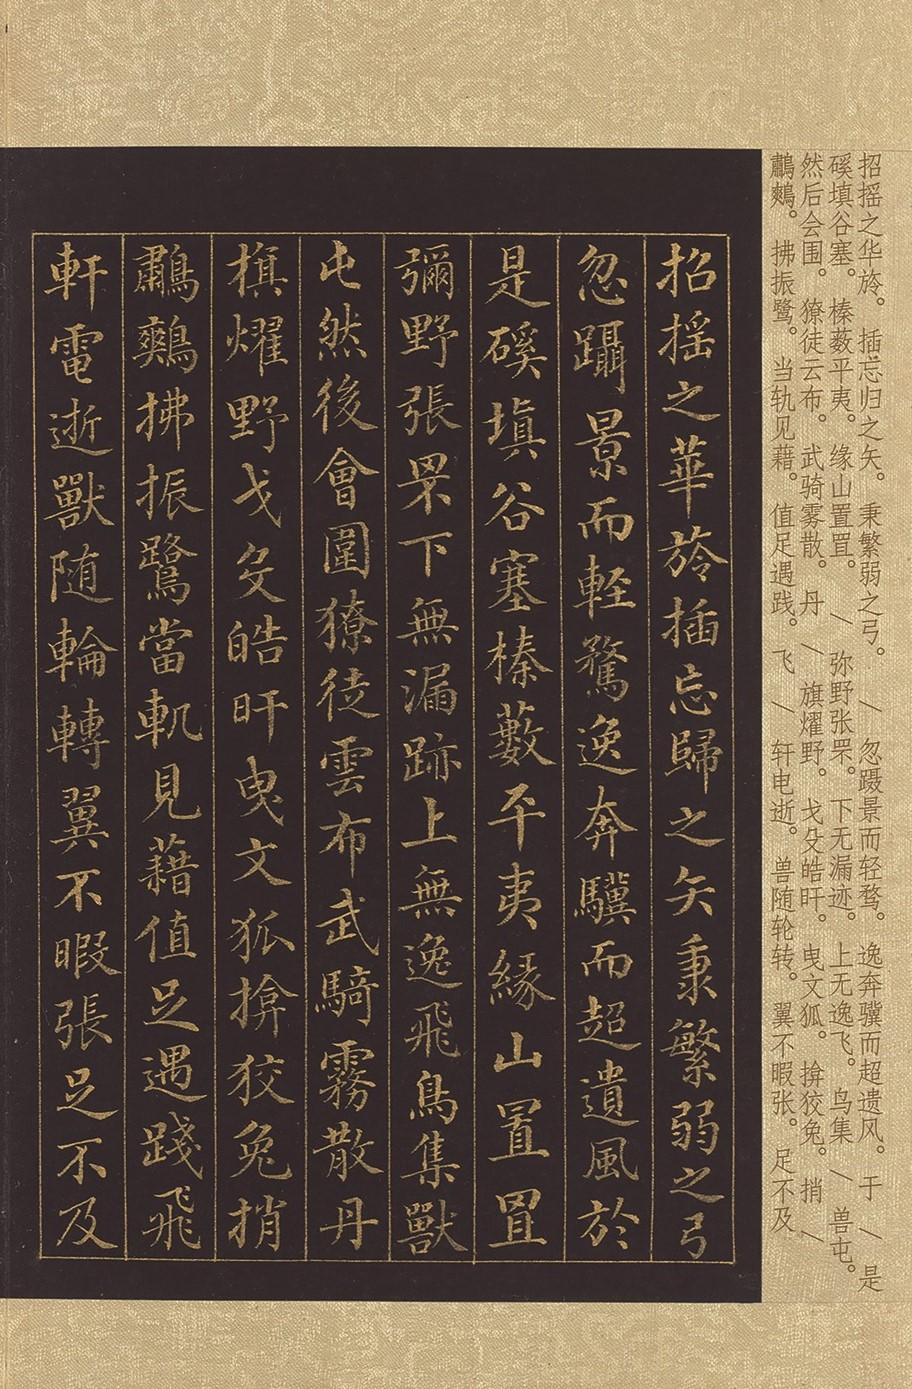 招摇之华旍。插忘归之矢。秉繁弱之弓。/忽蹑景而轻骛。逸奔骥而超遗风。于/是
磎填谷塞。榛薮平夷。缘山置罝。/弥野张罘。下无漏迹。上无逸飞。鸟集/兽屯。
然后会围。獠徒云布。武骑雾散。丹/旗燿野。戈殳皓旰。曳文狐。揜狡兔。捎/
鷫鷞。拂振鹭。当轨见藉。值足遇践。飞/轩电逝。兽随轮转。翼不暇张。足不及
招摇之華旍插忘歸之矢秉繁弱之弓
忽躡景而軽騖逸奔驥而超遺風於
是磎填谷塞榛藪平夷緣山置罝
彌野張罘下無漏跡上無逸飛鳥集獸
屯然後會圍獠徒雲布武騎霧散丹
旗燿野戈殳皓旰曳文狐揜狡兔捎
鷫鷞拂振鷺當軌見藉值足遇踐飛
軒電逝獸随輪轉翼不暇張足不及